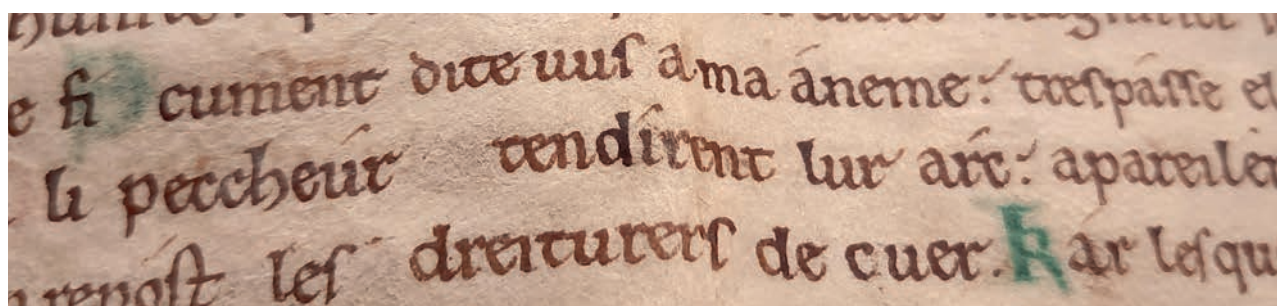 e fi cument dite uuſ a ma áneme: treſpaſſe
li peccheúr tendírent lur arc: apareiler
repoſt leſ dreiturerſ de cuer. Kar leſqu